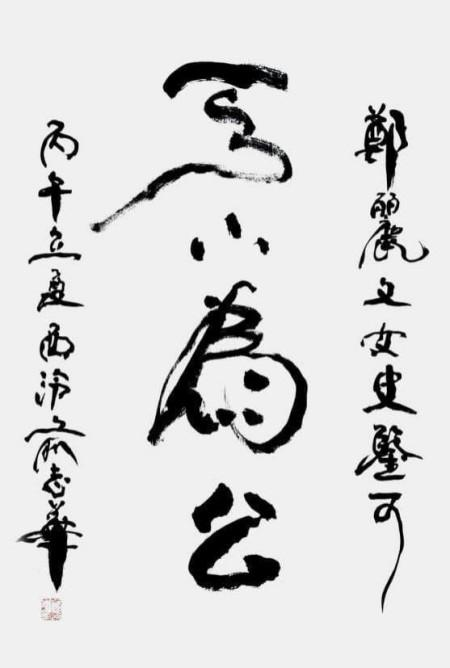 鄭麗文女史鑒可
天下為公
丙午立夏西泠志華